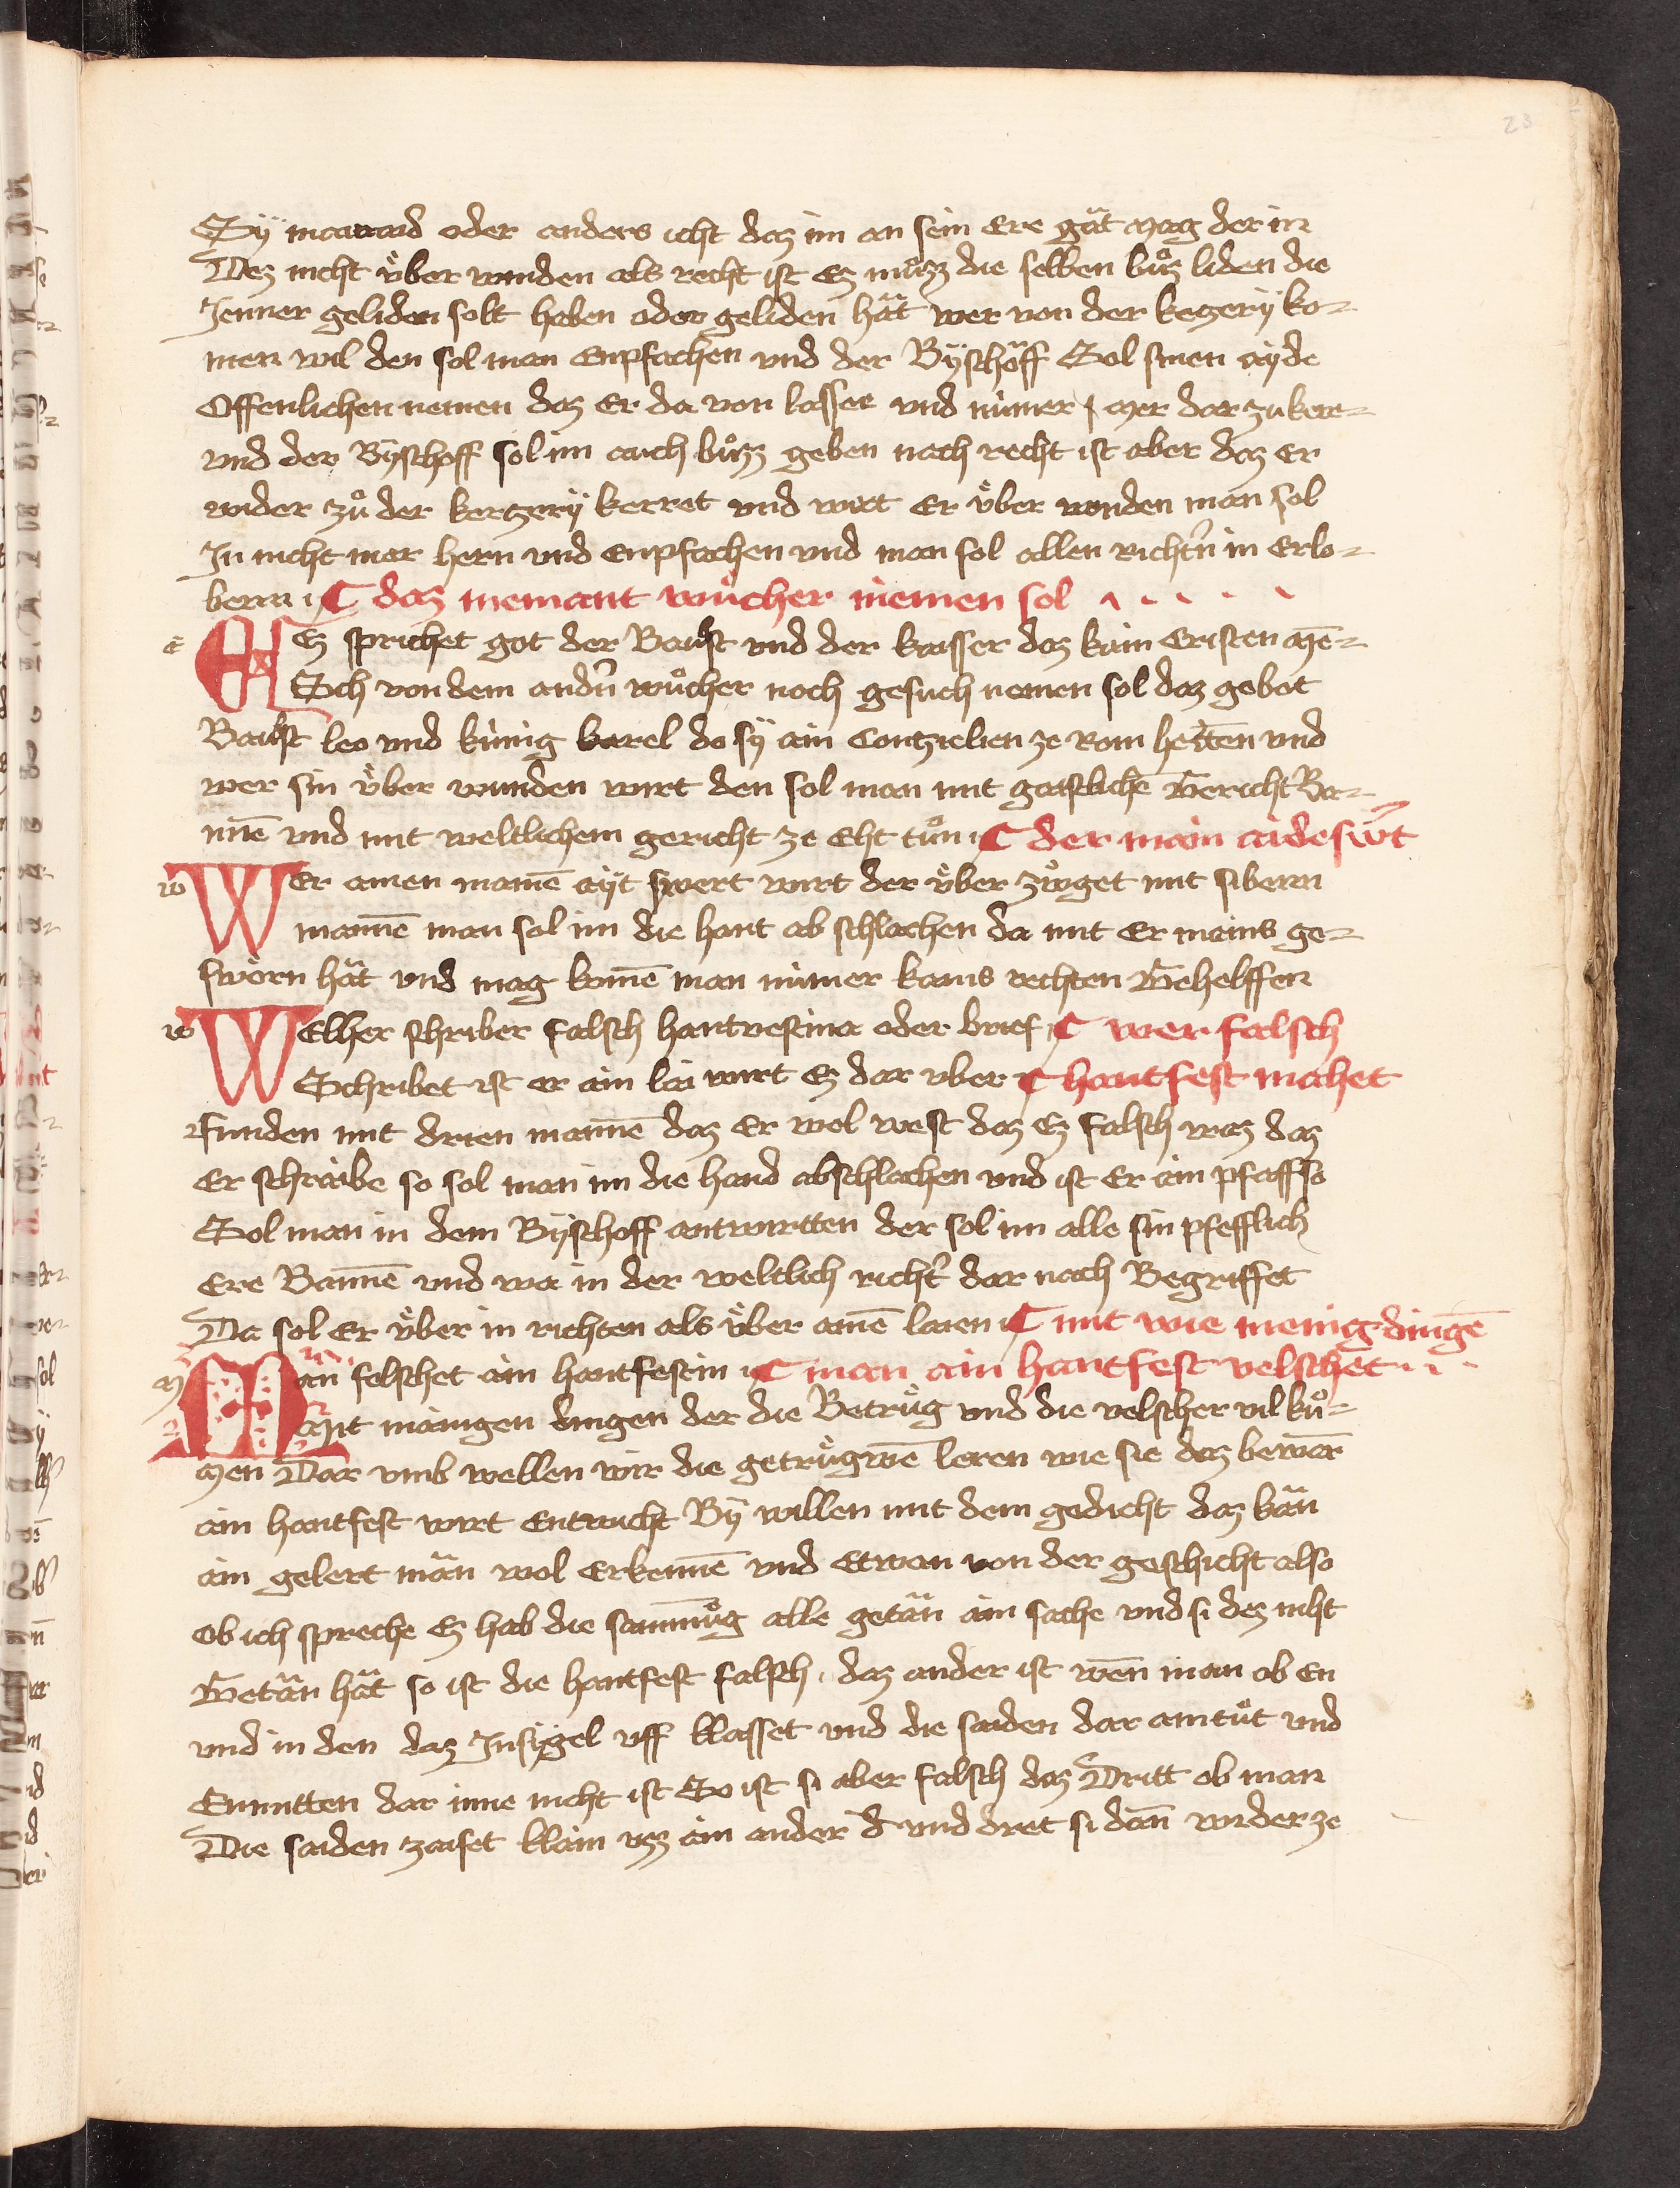 23
Sÿ mainaid oder anders icht daz im an sein Ere gät mag der in
Dez nicht v̈ber winden als recht ist Ez mu̇zz die selben bůz liden die
Jenner geliden solt haben oder geliden hät wer von der kegerÿ ko-
men wil den sol man Enpfachen vnd der Bÿschöff Sol sinen aÿde
Offenlichen nemen daz Er da von lasser vnd nimer mer dar zu kere-
vnd der Bÿschoff sol im auch bůzz geben nach recht ist aber daz Er
wider zů der kerzerÿ kerret vnd wirt Er v̈ber wnden man sol
In nicht mer hern vnd Enpfachen vnd man sol allen richtn̄ in Erlo-
berin ¶ daz niemant wu̇cher niemen sol
e
Ez sprichet got der Baubst vnd der kaisser daz kain Cristen mē-
Sch von dem andn̄ wůcher noch gesuch nemen sol daz gebot
Baubst leo vnd künig karel do sÿ ain Contzielien ze Rom hettēn vnd
wer sin v̈ber wunden wirt den sol man mit gaistlichē Gericht Ba-
nnē vnd mit weltlichem gericht ze Eht tůn ¶ der main aide swͤrt
w
WEr ainen mainē aÿt swert wirt der v̈ber zu̇get mit siberin
mannē man sol im die hant ab schlachen da mit Er mains ge-
sworn hät vnd mag komē man nimer kains rechten Gehelffen
w
WElher schriber falsch hantvestina oder brief ¶ wer falsch
Schribet ist er ain lai wirt Ez dar vber ¶ hantfest machet
Funden mit drien mannē daz Er wol west daz Ez falsch waz daz
Er schraibe so sol man im die hand abschlachen vnd ist Er ain pfaff so
Sol man in dem Bÿschoff antwurtten der sol im alle sin pfefflich
Ere Bannē vnd wa in der weltlich richt' dar nach Begriffet
Da sol Er v̈ber in richten als v̈ber ainē laien ¶ mit wie menig dingē
m
Man felschet ain hantfestin ¶ man ain hantfest velschet
Mit mänigen dingen der die Betru̇g vnd die velscher vil ků-
men Dar vmb wellen wir die getru̇gnē leren wie sie daz bewarn̄
ain hantfest wirt Entwicht Bÿ willen mit dem gedicht daz kän
ain gelert män wol Erkennē vnd Etwan von der geschicht also
ob ich spreche Ez hab die samnůg alle getän ain sache vnd si dez niht
Getän hät so ist die hantfest falsch. daz ander ist wēn man ob En
vnd in den daz Insÿgel vff klasset vnd die saiden dar ain tu̇t vnd
Enmitten dar inne nicht ist So ist si aber falsch daz Dritt ob man
Die saiden zaiset klain vzz ain ander d' vnd dret si dan̄ wider ze